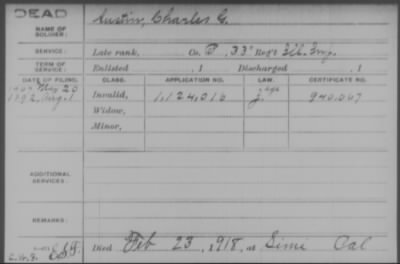 DEAD
NAME OF SOLDIER: Austin, Charles G.
SERVICE: Late rank, Co. F, 33" Reg't Ill. Inf.
TERM OF SERVICE: Enlisted , 1 Discharged , 1
DATE OF FILING. CLASS. APPLICATION NO. LAW. CERTIFICATE NO.
May 20
1892, Aug. 1 Invalid, 1,124,016 940,007
Widow,
Minor,
ADDITIONAL SERVICES:
REMARKS:
Died Feb 23, 1918, at Simi Cal